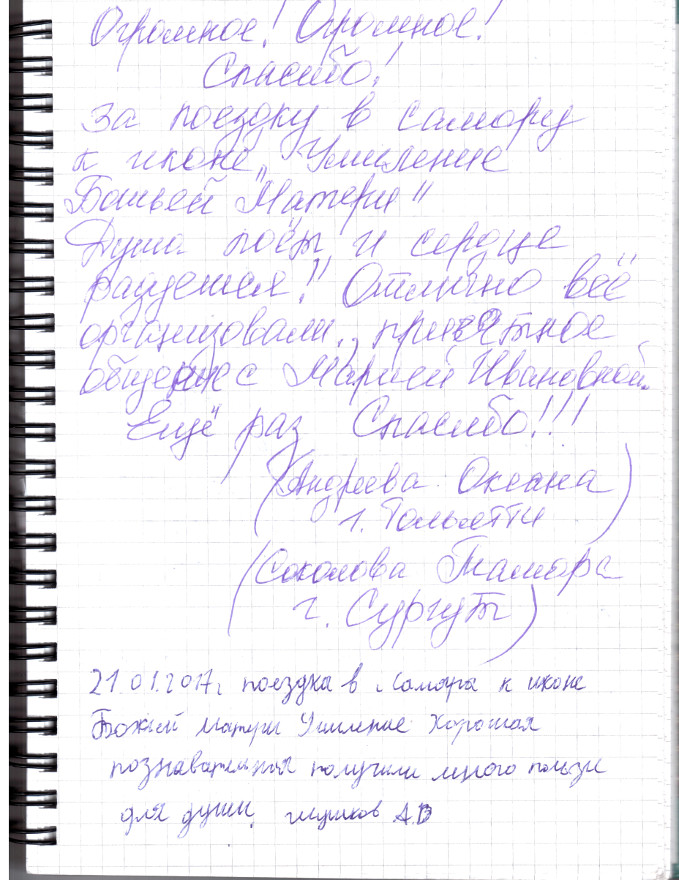 Огромное! Огромное!
Спасибо!
за поездку в самару
к иконе „Умиление
Божьей Матери"
Душа поёт и сердце
радуется! Отлично всё
организовали, приятное
общение с Марией Ивановной.
Ещё раз Спасибо!!!
(Андреева Оксана)
г. Тольятти
(Соколова Тамара
г. Сургут)
21.01.2017г поездка в Самара к иконе
Божьей матери Умиление Хорошая
познавательная получили много пользы
для души. А.В